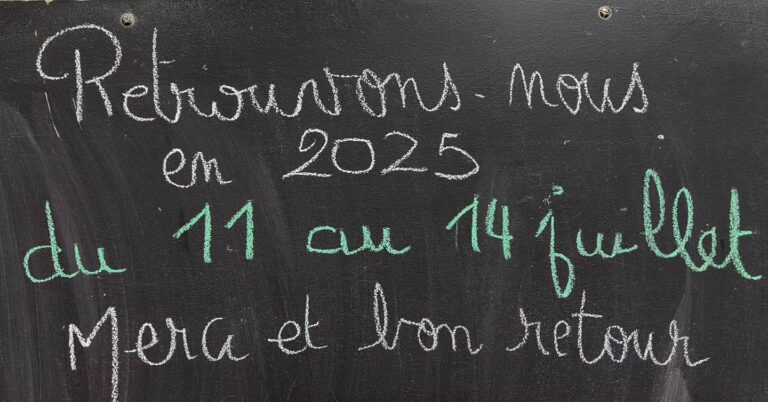 Retrouvons-nous
en 2025
du 11 au 14 juillet
Merci et bon retour